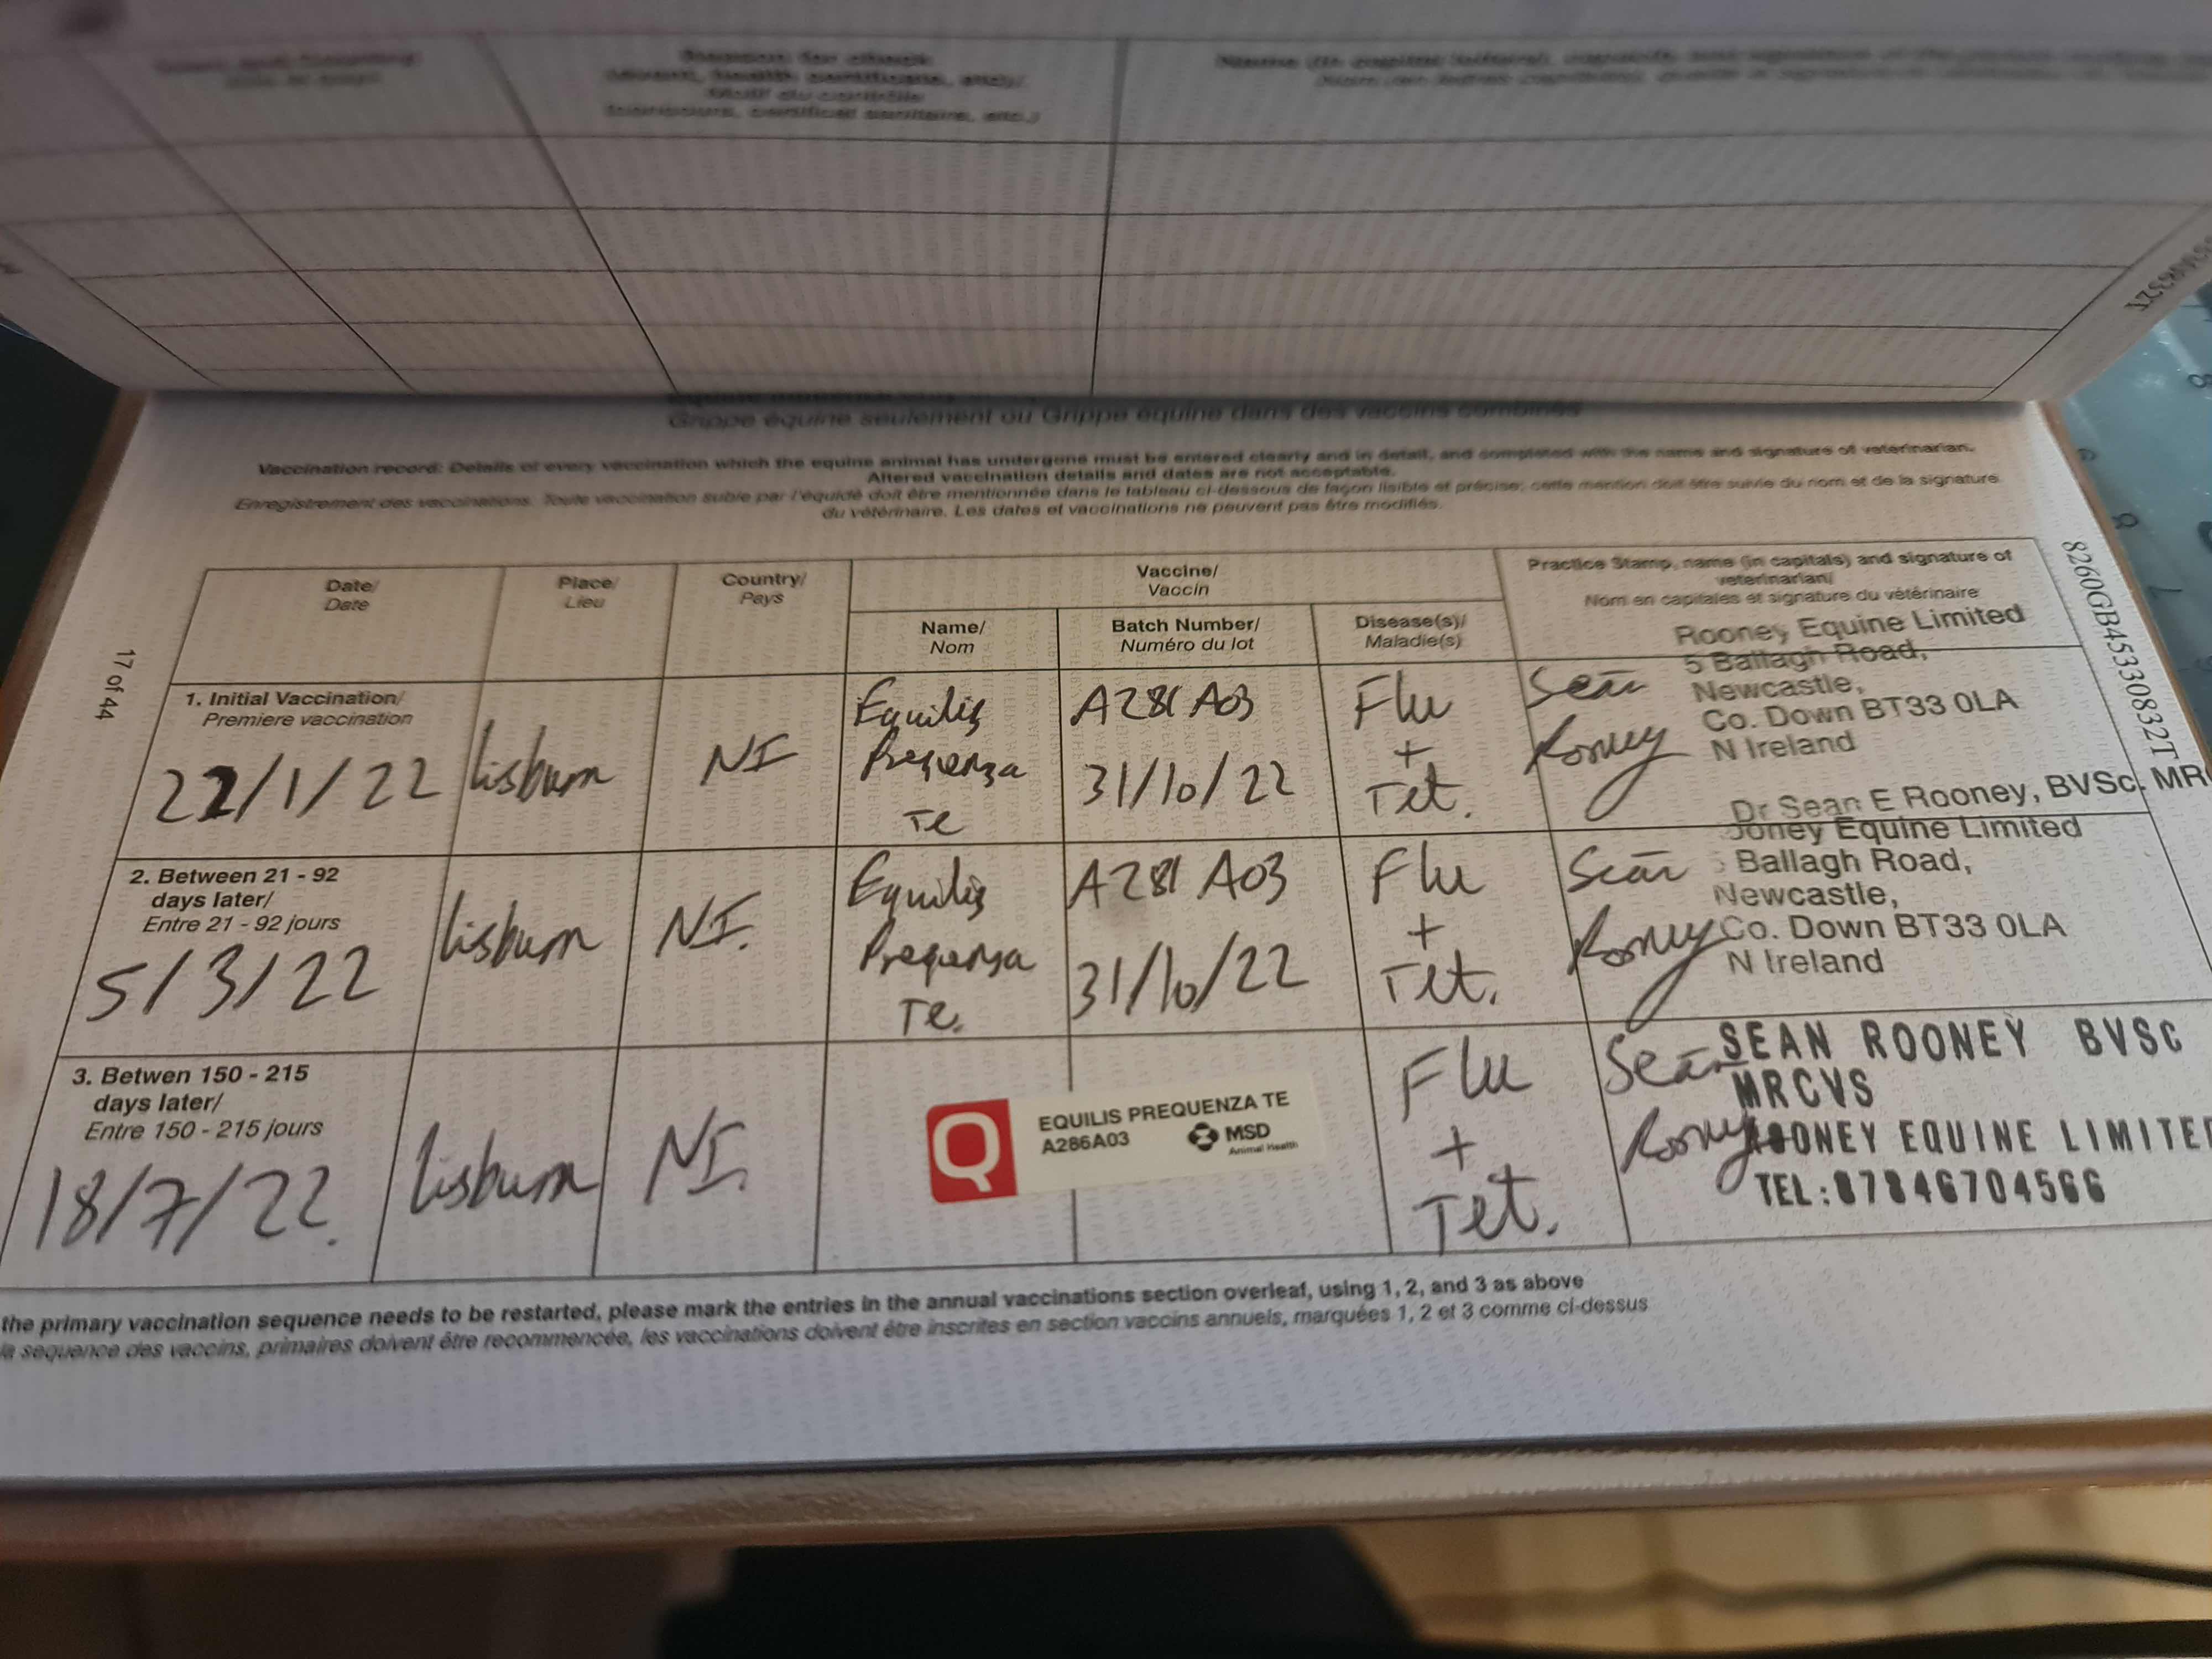 Reason for check
(event, health certificate, etc)/
Motif du contrôle
(concours, certificat sanitaire, etc.)
Grippe équine seulement ou Grippe équine dans des vaccins combinés
Vaccination record: Details of every vaccination which the equine animal has undergone must be entered clearly and in detail, and completed with the name and signature of veterinarian.
Altered vaccination details and dates are not acceptable.
Enregistrement des vaccinations. Toute vaccination subie par l'équidé doit être mentionnée dans le tableau ci-dessous de façon lisible et précise; cette mention doit être suivie du nom et de la signature
du vétérinaire. Les dates et vaccinations ne peuvent pas être modifiés.
Date/
Date
Place/
Lieu
Country/
Pays
Vaccine/
Vaccin
Name/
Nom
Batch Number/
Numéro du lot
Disease(s)/
Maladie(s)
Practice Stamp, name (in capitals) and signature of
veterinarian/
Nom en capitales et signature du vétérinaire
17 of 44
8260GB45330832T
1. Initial Vaccination/
Premiere vaccination
22/1/22
Lisburn
NI
Equilis
Prequenza
Te
A281 A03
31/10/22
Flu
+
Tet.
Seán
Rooney
Rooney Equine Limited
5 Ballagh Road,
Newcastle,
Co. Down BT33 0LA
N Ireland
Dr Sean E Rooney, BVSc. MR
2. Between 21 - 92
days later/
Entre 21 - 92 jours
5/3/22
Lisburn
NI.
Equilis
Prequenza
Te.
A281 A03
31/10/22
Flu
+
Tet.
Seán
Rooney
ooney Equine Limited
Ballagh Road,
Newcastle,
Co. Down BT33 0LA
N Ireland
3. Betwen 150 - 215
days later/
Entre 150 - 215 jours
18/7/22.
Lisburn
NI.
Q
EQUILIS PREQUENZA TE
A286A03
MSD
Animal Health
Flu
+
Tet.
Seán
Rooney
SEAN ROONEY BVSc
MRCVS
ROONEY EQUINE LIMITED
TEL:07846704566
the primary vaccination sequence needs to be restarted, please mark the entries in the annual vaccinations section overleaf, using 1, 2, and 3 as above
la sequence des vaccins, primaires doivent être recommencée, les vaccinations doivent être inscrites en section vaccins annuels, marquées 1, 2 et 3 comme ci-dessus